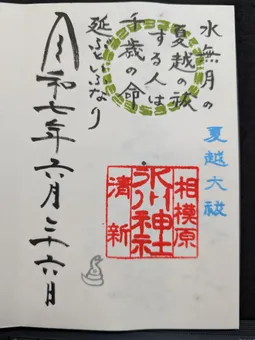 水無月の
夏越の祓
する人は
千歳の命
延ぶといふなり
夏越大祓
相模原
氷川神社
清新
令和七年六月三十六日